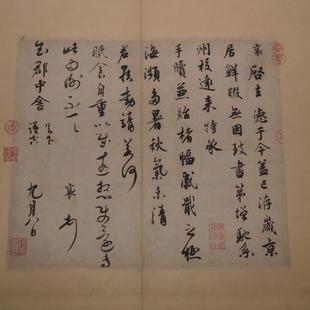 襄啓去德于今蓋已涉歲京
居鮮暇無因致書第增馳系
州校遠來特承
手牘兼貺楮幅感戢之極
海瀕多暑秋氣未清
君侯動靜若何
眠食自重以
此為謝不一一 襄
郡中舍 足下 謹空 九月八日